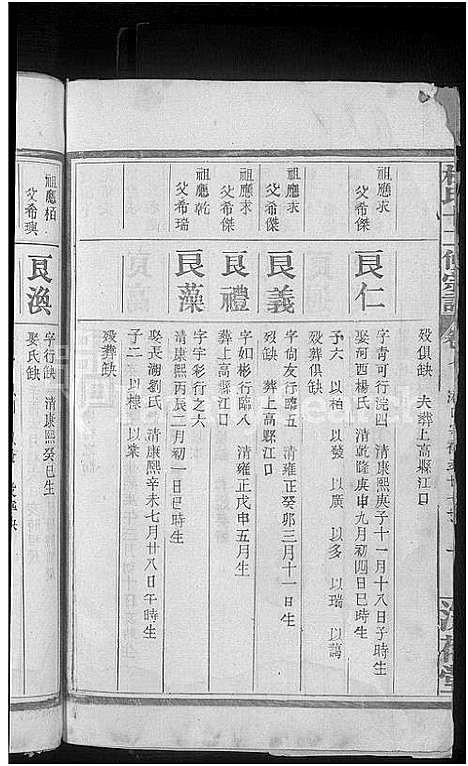 歿俱缺 夫葬上高縣江口
祖應求
父希傑
良仁
字青可行浣四 清康熙庚子十一月十八日子時生
娶河西楊氏 清乾隆庚申九月初四日巳時生
子六 以柏 以發 以廣 以多 以瑞 以藹
歿葬俱缺
祖應求
父希傑
良義
字尙友行臨五 清雍正癸卯三月十一日生
歿缺 葬上高縣江口
祖應求
父希傑
良禮
字如彬行臨八 清雍正戊申五月生
葬上高縣江口
祖應乾
父希瑞
良藻
字宇彩行之六
清康熙丙辰二月初一日巳時生
娶芫湖劉氏 清康熙辛未七月廿八日午時生
子二 以樑 以業
歿葬缺
祖應栢
父希琠
良渙
字行缺 清康熙癸巳生
娶氏缺